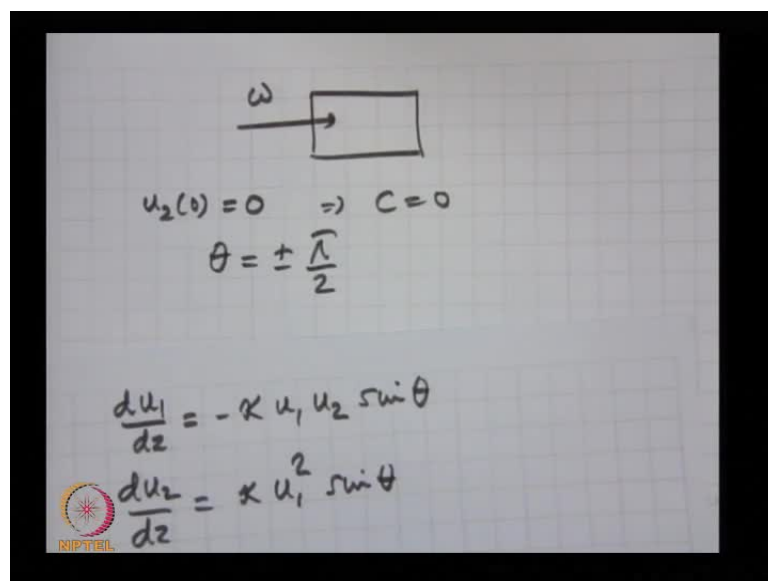 ω
u₂(0) = 0 ⇒ C = 0
θ = ± π/2
du₁/dz = - κ u₁ u₂ sin θ
du₂/dz = κ u₁² sin θ
NPTEL